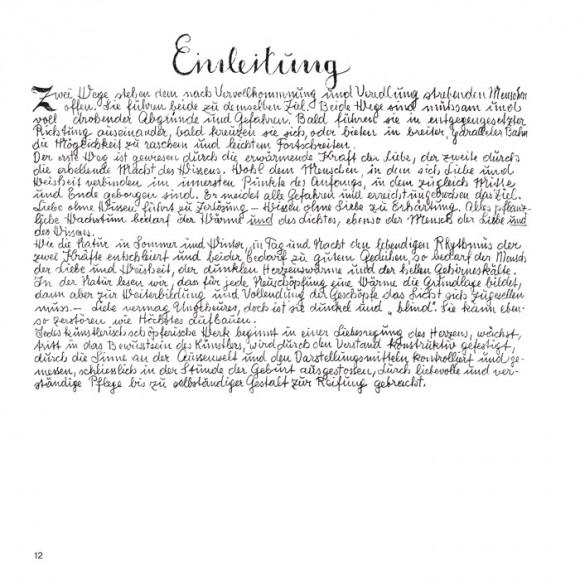 Einleitung
Zwei Wege stehen dem nach Vervollkommnung und Veredlung strebenden Menschen
offen. Sie führen beide zu demselben Ziel. Beide Wege sind mühsam und
voll drohender Abgründe und Gefahren. Bald führen sie in entgegengesetzter
Richtung auseinander, bald kreuzen sie sich, oder bieten in breiter, paralleler Bahn
die Möglichkeit zu raschem und leichtem Fortschreiten.
Der erste Weg ist gewiesen durch die erwärmende Kraft der Liebe, der zweite durch
die erhellende Macht des Wissens. Wohl dem Menschen, in dem sich Liebe und
Weisheit verbinden im innersten Punkte des Anfangs, in dem zugleich Mitte
und Ende geborgen sind. Er meidet alle Gefahren und erreicht ungebrochen das Ziel.
Liebe ohne Wissen führt zu Zerlösung – Wissen ohne Liebe zu Erhärtung. Alles pflanz-
liche Wachstum bedarf der Wärme und des Lichtes, ebenso der Mensch der Liebe und
des Wissens.
Wie die Natur in Sommer und Winter, in Tag und Nacht den lebendigen Rhythmus der
zwei Kräfte entschleiert und beider bedarf zu gutem Gedeihen, so bedarf der Mensch
der Liebe und Weisheit, der dunklen Herzenswärme und der hellen Gehirneskälte.
In der Natur lesen wir, dan für jede Neuschöpfung eine Wärme die Grundlage bildet,
dann aber zur Weiterbildung und Vollendung der Geschöpfe das Licht sich zugesellen
muss. – Liebe vermag Ungeheures, doch ist sie dunkel und „blind". Sie kann eben-
so zerstören wie Höchstes aufbauen.
Jedes künstlerisch schöpferische Werk beginnt in einer Liebesregung des Herzens, wächst,
tritt in das Bewusstsein des Künstlers, wird durch den Verstand konstruktiv gefestigt,
durch die Sinne an der Aussenwelt und den Darstellungsmitteln kontrolliert und ge-
messen, schliesslich in der Stunde der Geburt ausgestossen, durch liebevolle und ver-
ständige Pflege bis zu selbständiger Gestalt zur Reifung gebracht.
12